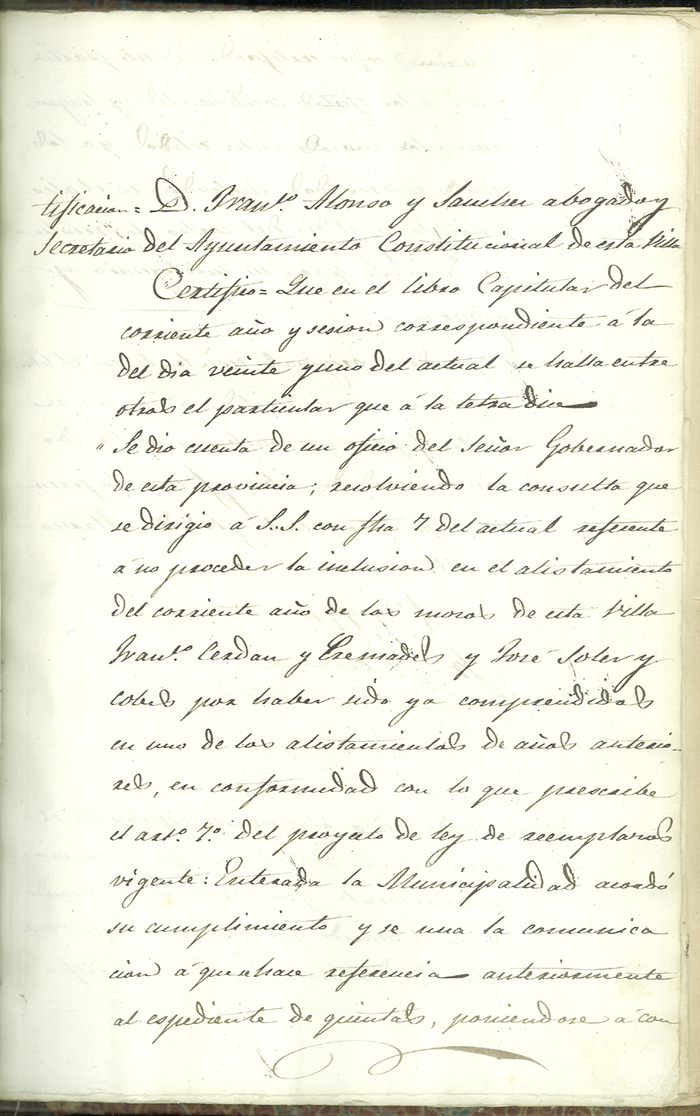 tificacion = D. Fran.co Alonso y Sanchez abogado y
Secretario del Ayuntamiento Constitucional de esta Villa
Certifico = Que en el libro Capitular del
corriente año y sesion correspondiente á la
del dia veinte y uno del actual se halla entre
otros el particular que á la letra dice
" Se dio cuenta de un oficio del Señor Gobernador
de esta provincia; resolviendo la consulta que
se dirigio á S.S. con fha 7 del actual referente
á no proceder la inclusion en el alistamiento
del corriente año de los mozos de esta Villa
Fran.co Cerdan y Cremades y José Soler y
Cobes por haber sido ya comprendidos
en uno de los alistamientos de años anterio-
res, en conformidad con lo que prescribe
el arto. 7o. del proyecto de ley de reemplazos
vigente: Enterada la Municipalidad acordó
su cumplimiento y se una la comunica
cion á que se hace referencia anteriormente
al espediente de quintas, poniendose á con